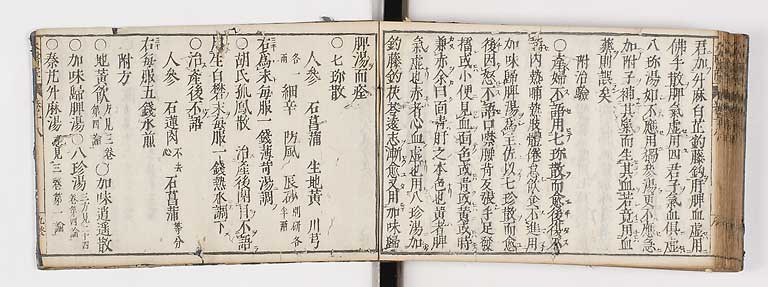 君加升麻白芷釣藤鈎肝脾血虛用
佛手散脾氣虛用四君子氣血俱虛
八珍湯如不應用獨參湯更不應急
加附子補其氣而生其血若竟用血
藥則誤矣
附治驗
○產婦不語用七珍散而愈後復不
語內熱晡熱肢體倦怠飲食不進用
加味歸脾湯爲主佐以七珍散而愈
後因怒不語口噤腰背反張手足發
搐或小便見血面色或青或黃或時
兼赤余曰面青肝之本色也黃者脾
氣虛也赤者心血虛也用八珍湯加
釣藤鈎茯苓遠志漸愈又用加味歸
脾湯而痊
○七珍散
人參 石菖蒲 生地黃 川芎
各一兩 細辛 防風 辰砂 別研各半兩
右爲末每服一錢薄荷湯調
○胡氏孤鳳散 治產後閉目不語
用生白礬末每服一錢熱水調下
○治產後不語
人參 石蓮肉 不去心 石菖蒲 等分
右每服五錢水煎
附方
○地黃飲 方見三卷第四論 ○加味逍遙散
○加味歸脾湯 ○八珍湯 三方見二十四卷第四論
○秦艽升麻湯 方見三卷第一論